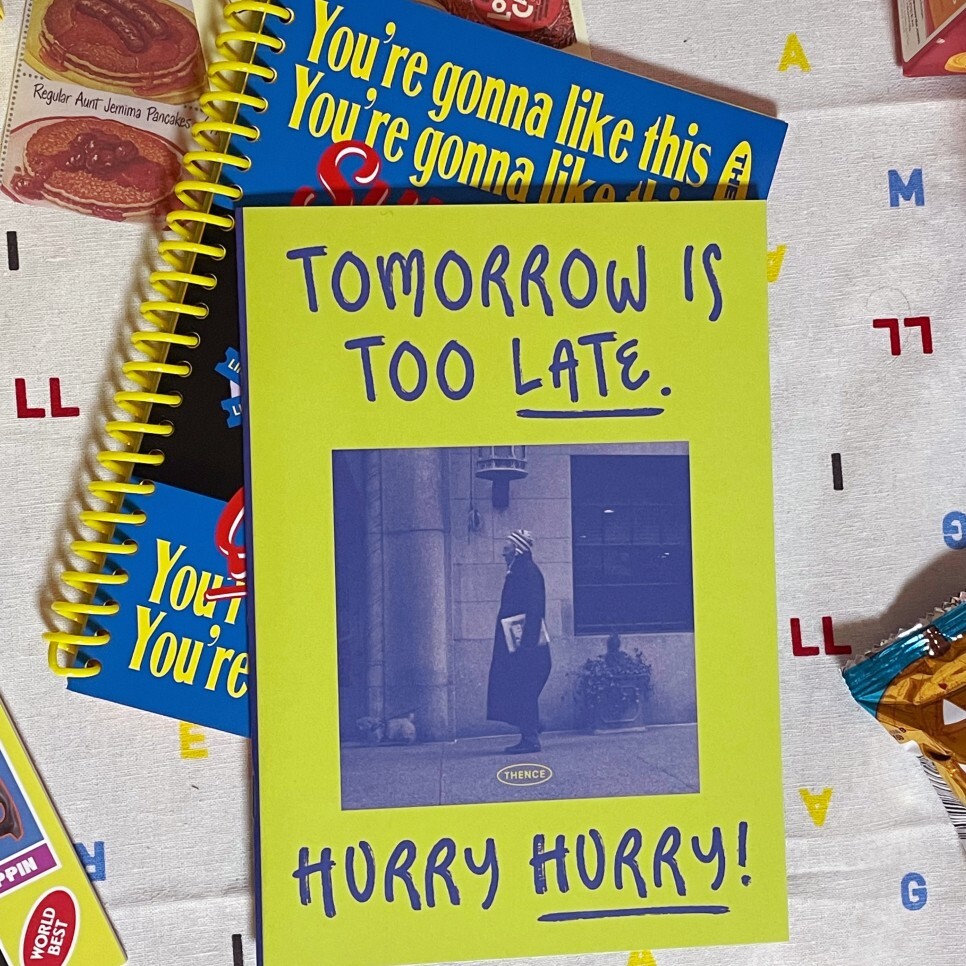 Regular Aunt Jemima Pancakes
You're gonna like this
You're gonna like this
THE
TOMORROW IS
TOO LATE.
THENCE
HURRY HURRY!
You're
You're
PPIN
WORLD
BEST
M
A
A
I
LL
LL
I
G
LL
E
A
R
G
I
A